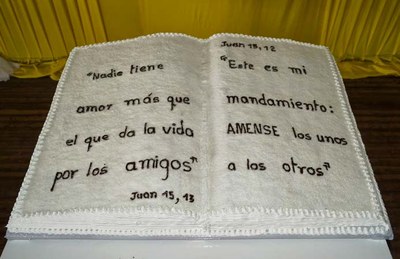 "Nadie tiene
amor más que
el que da la vida
por los amigos"
Juan 15, 13
Juan 15, 12
"Este es mi
mandamiento:
AMENSE los unos
a los otros"